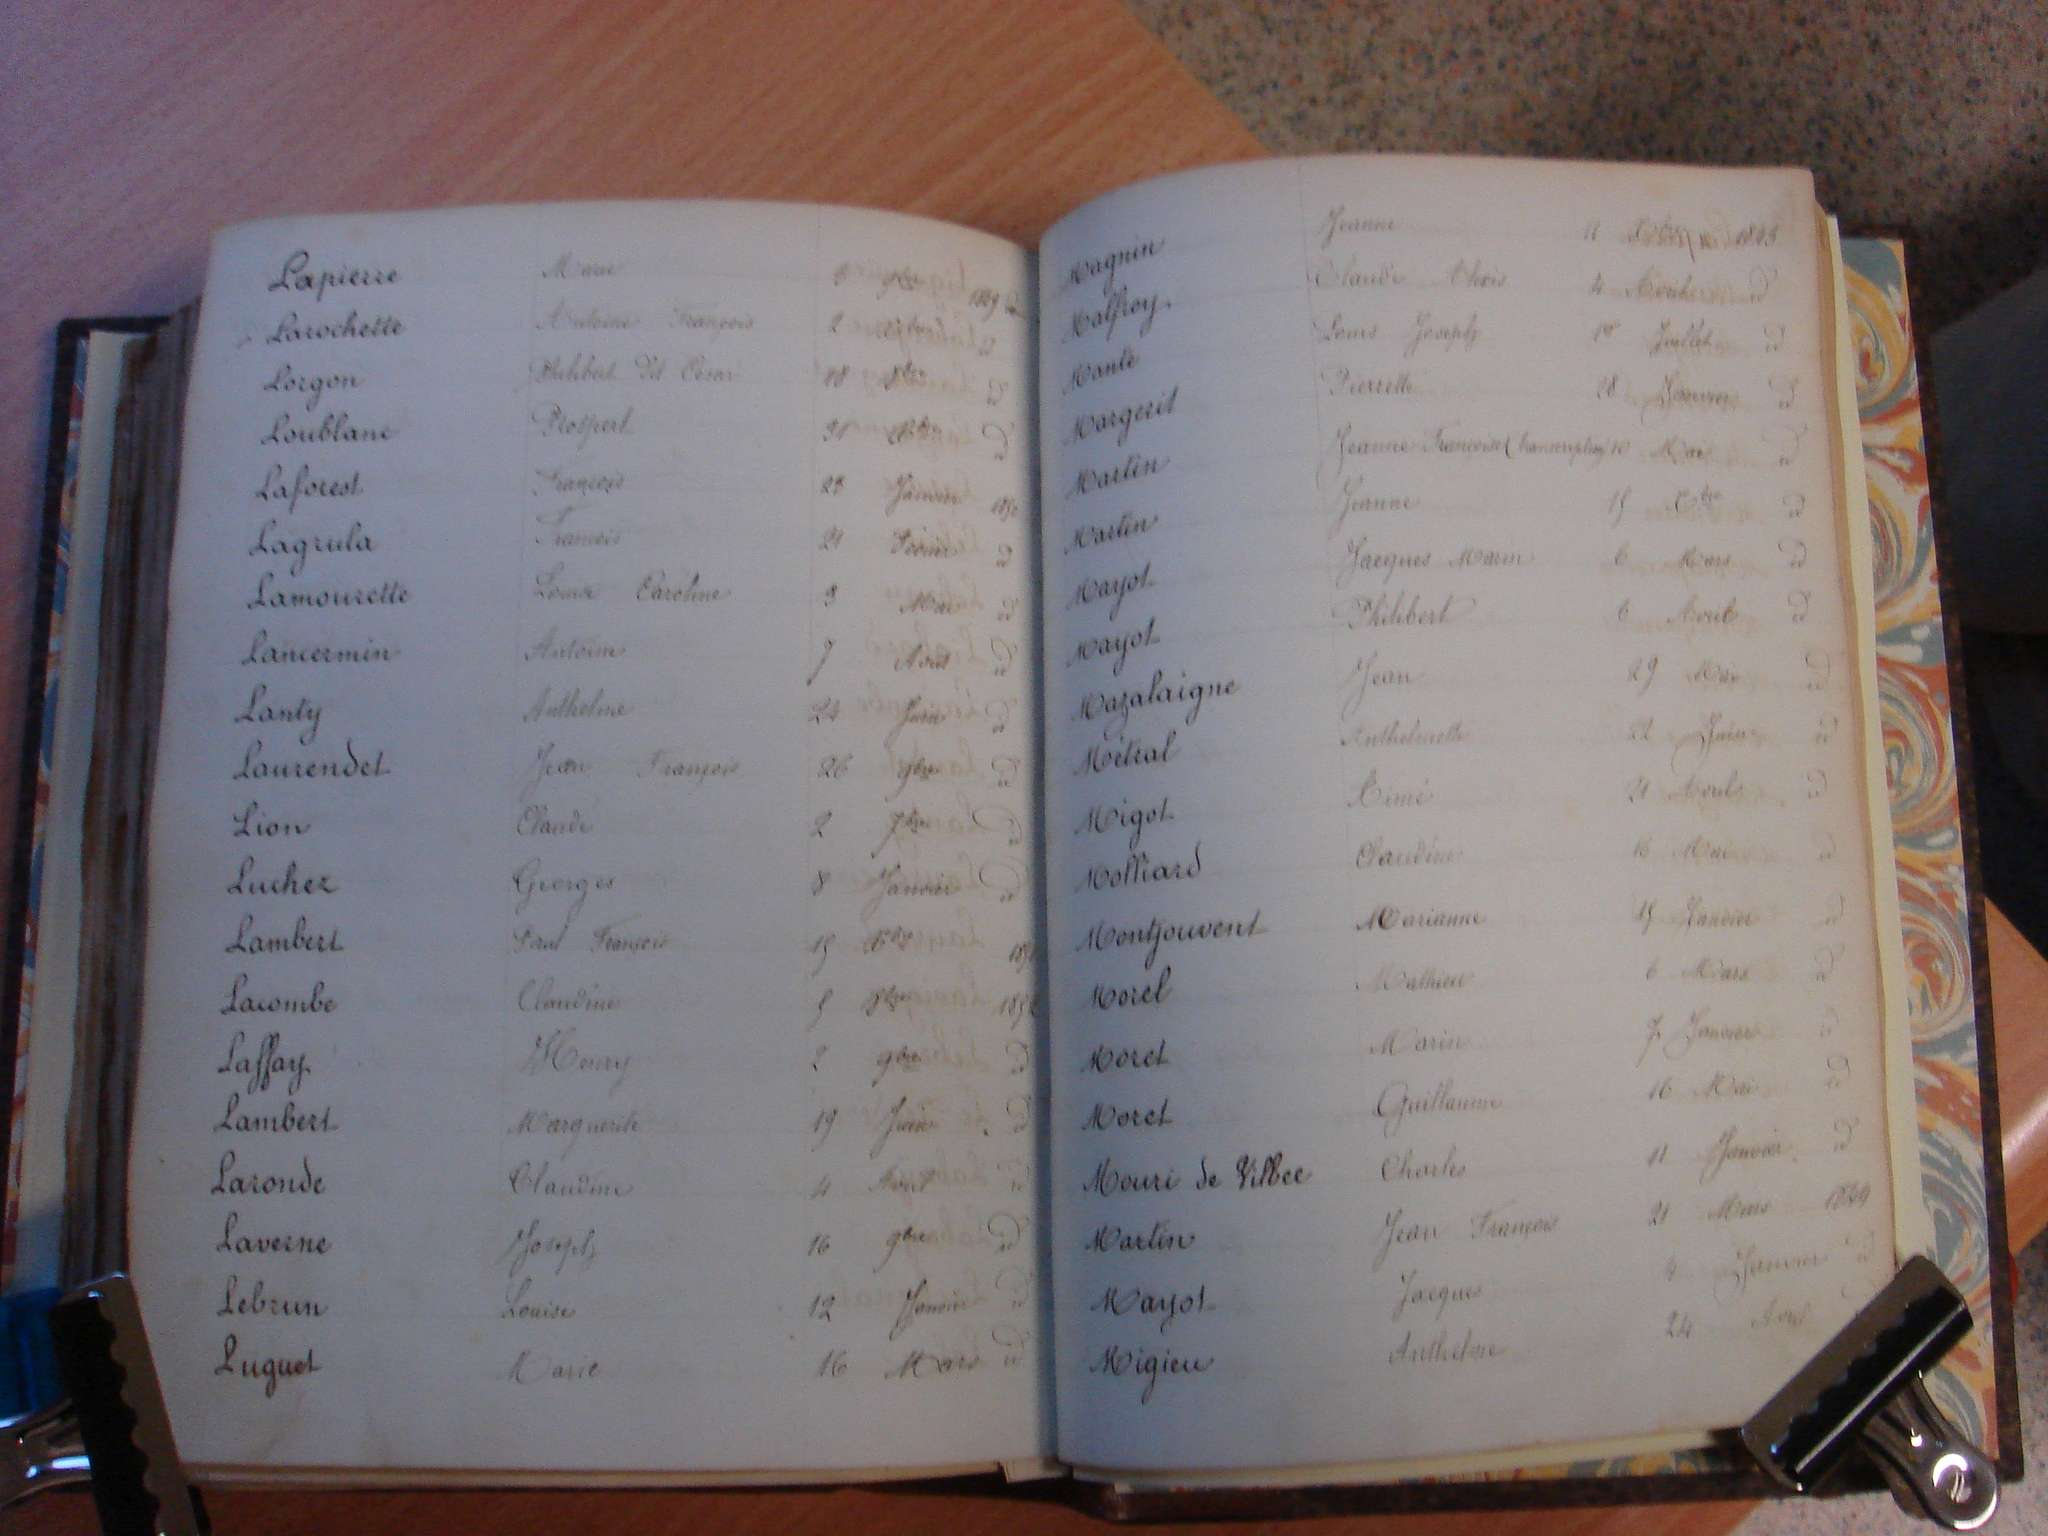 Lapierre Marie 9 9bre 1849
Larochette Antoine François 2 id
Lorgon Philibert dit César 18 8bre id
Loublanc Prospert 31 Xbre id
Laforest François 28 Janvier 1850
Lagrula François 21 Février id
Lamourette Louise Caroline 3 Mai id
Lancermin Antoine 7 Aout id
Lanty Anthelme 24 Juin id
Laurendet Jean François 26 9bre id
Lion Claude 2 7bre id
Luchez Georges 8 Janvier id
Lambert Paul François 15 Xbre
Lacombe Claudine 5 8bre
Laffay Henry 2 9bre id
Lambert Marguerite 19 Juin id
Laronde Claudine 4 Aout id
Laverne Joseph 16 9bre id
Lebrun Louise 12 Janvier id
Luguet Marie 16 Mars id
Magnin Jeanne 11
Malfroy Claude Aloïs 4 Aout id
Mante Louis Joseph Juillet id
Margerit Pierrette 28 Janvier id
Martin Jeanne Françoise (transcription) 10 Mai id
Martin Jeanne 15 Xbre id
Mayot Jacques Marin 6 Mars id
Mayot Philibert 6 Aout id
Mazalaigne Jean 29 Mai id
Métral Anthelmette 22 Juin id
Migot Aimé 21 Aout id
Molliard Claudine 16 Mai id
Montjouvent Marianne 15 Janvier id
Morel Mathieu 6 Mars id
Moret Marin 7 Janvier id
Moret Guillaume 16 Mai id
Mouri de Vilbee Charles 11 Janvier id
Martin Jean François 21 Mars 1849
Mayot Jacques 4 Janvier id
Migieu Anthelme 24 Aout